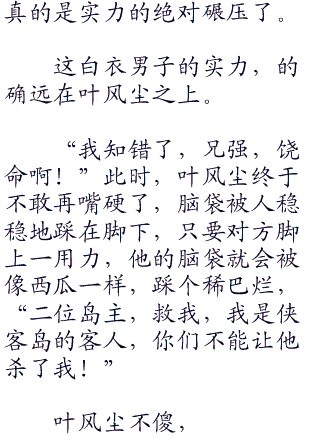 真的是实力的绝对碾压了。
这白衣男子的实力，的
确远在叶风尘之上。
“我知错了，兄强，饶
命啊！”此时，叶风尘终于
不敢再嘴硬了，脑袋被人稳
稳地踩在脚下，只要对方脚
上一用力，他的脑袋就会被
像西瓜一样，踩个稀巴烂，
“二位岛主，救我，我是侠
客岛的客人，你们不能让他
杀了我！”
叶风尘不傻，